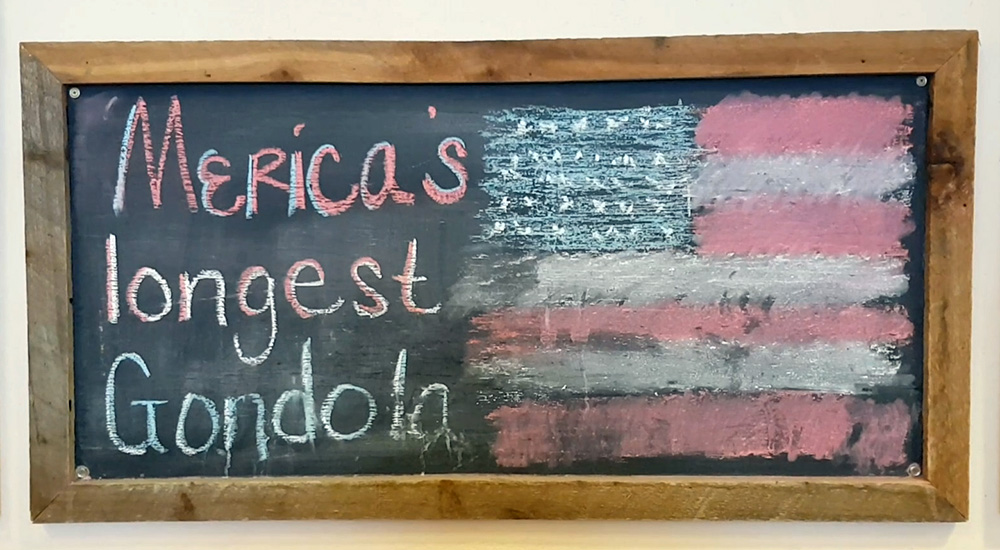 Merica's
longest
Gondola